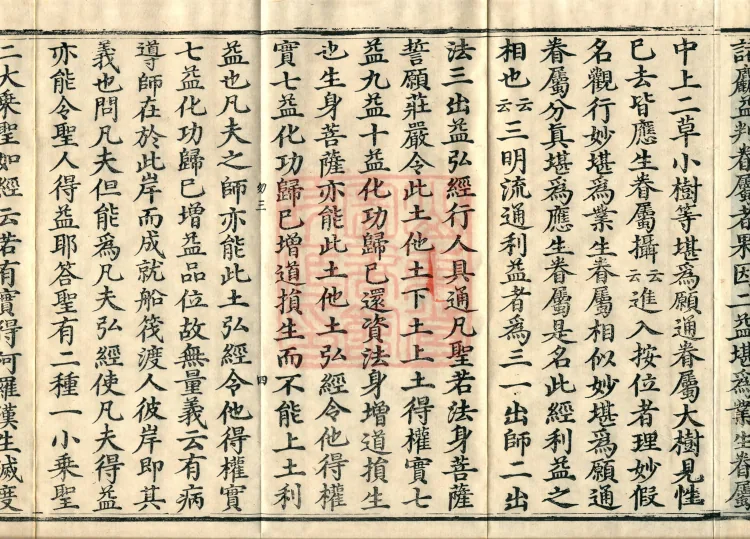 記廳益判眷屬者果因二益堪為業生眷屬
中上二草小樹等堪為願通眷屬大樹見性
已去皆應生眷屬攝云云進入按位者理妙假
名觀行妙堪為業生眷屬相似妙堪為願通
眷屬分真堪為應生眷屬是名此經利益之
相也云云三明流通利益者為三一出師二出
法三出益弘經行人具通凡聖若法身菩薩
誓願莊嚴令此土他土下土上土得權實七
益九益十益化功歸已還資法身增道損生
也生身菩薩亦能此土他土弘經令他得權
實七益化功歸已增道損生而不能上土利
勿三 四
益也凡夫之師亦能此土弘經令他得權實
七益化功歸已增益品位故無量義云有病
導師在於此岸而成就船筏渡人彼岸即其
義也問凡夫但能為凡夫弘經使凡夫得益
亦能令聖人得益耶答聖有二種一小乘聖
二大乘聖如經云若有實得阿羅漢生滅度